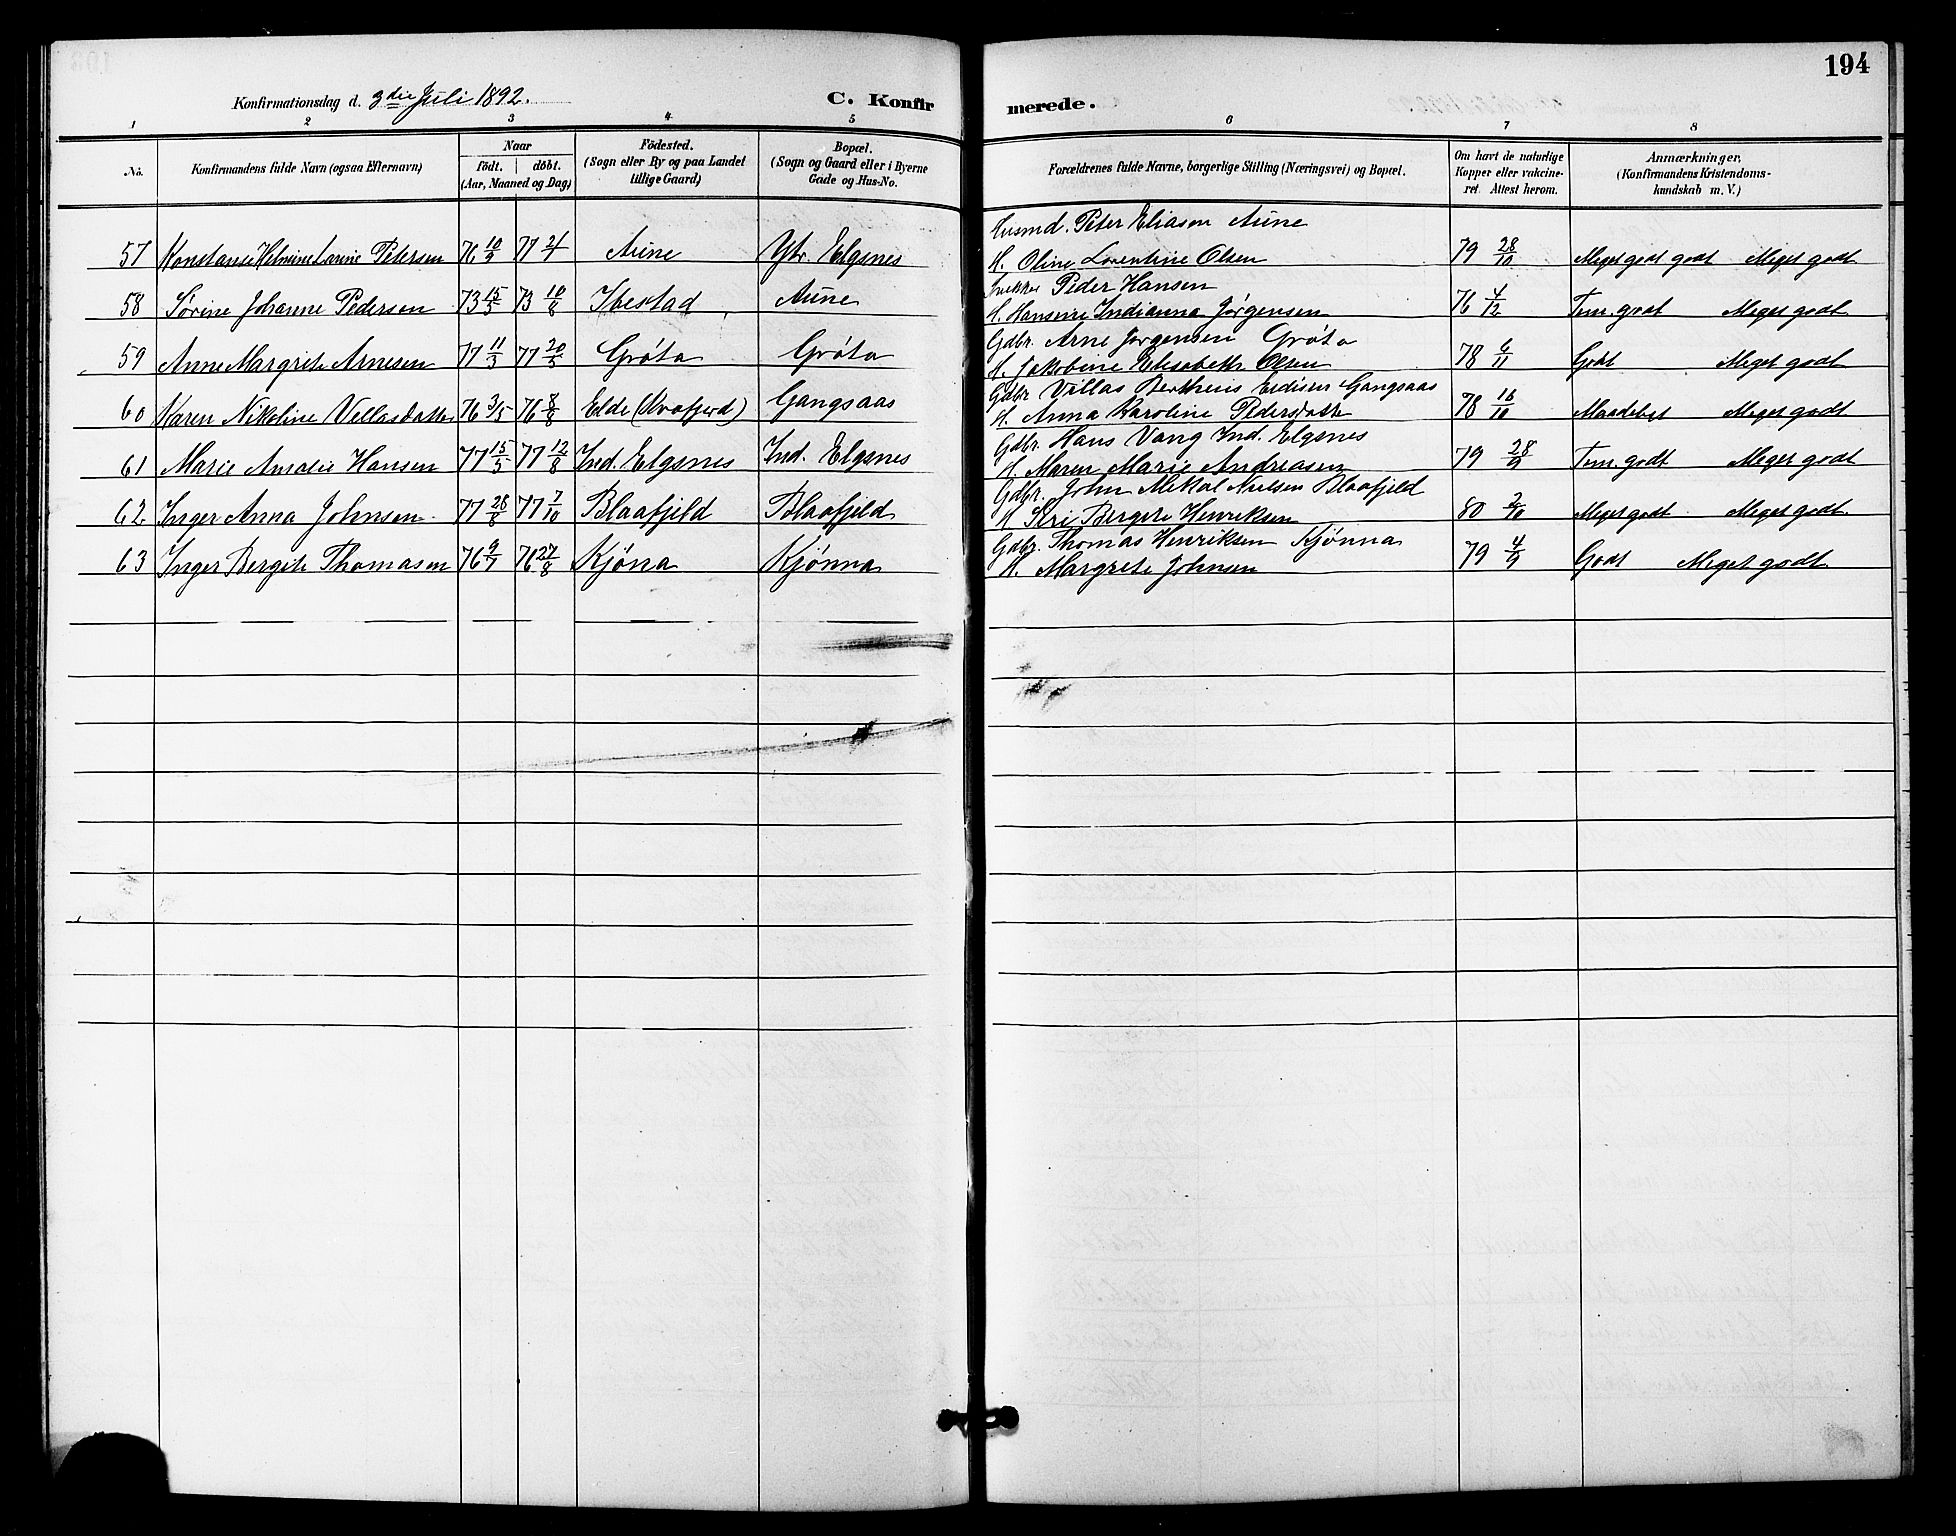 194
Konfirmationsdag d. 3die Juli 1892.
C. Konfirmerede.
1 2 3 4 5 6 7 8
No. Konfirmandens fulde Navn (ogsaa Efternavn) Naar født. døbt. (Aar, Maaned og Dag) Födested. (Sogn eller By og paa Landet tillige Gaard) Bopæl. (Sogn og Gaard eller i Byerne Gade og Hus-No. Forældrenes fulde Navne, borgerlige Stilling (Næringsvei) og Bopæl. Om havt de naturlige Kopper eller vakcineret. Attest herom. Anmærkninger, (Konfirmandens Kristendomskundskab m. V.)
Husmd. Peter Eliasen Aune
57 Konstanse Helmine Lovine Petersen 76 10/9 77 2/1 Aune Ytr. Elgsnes H. Oline Lorentine Olsen 79 28/10 Meget godt godt Meget godt
Peder Hansen
58 Sørine Johanne Pedersen 73 15/5 73 10/8 Ibestad Aune H. Hansine Indianna Jørgensen 76 4/12 Tem. godt Meget godt
Gdbr. Arne Jørgensen Grøta
59 Anne Margrite Arnesen 77 11/3 77 20/5 Grøta Grøta H. Jakobine Elisabeth Olsen 78 6/11 Godt Meget godt
Gdbr. Villas Bertheus Erdisen Gangsaas
60 Karen Nikoline Villasdatter 76 3/5 76 8/8 Elde (Kvafjord) Gangsaas H. Anna Karoline Pedersdatter 78 18/10 Maadeligt Meget godt
Gdbr. Hans Vang Ind. Elgsnes
61 Marie Amalie Hansen 77 15/5 77 12/8 Ind. Elgsnes Ind. Elgsnes H. Maren Marie Andreasen 79 28/9 Tem. godt Meget godt
Gdbr. John Mikal Nielsen Blaafjeld
62 Inger Anna Johnsen 77 28/8 77 7/10 Blaafjeld Blaafjeld H. Siri Bergite Henriksen 80 2/10 Meget godt Meget godt.
Gdbr. Thomas Henriksen Kjønna
63 Inger Bergite Thomasen 76 9/7 76 27/8 Kjøna Kjønna H. Margrete Johnsen 79 4/9 Godt Meget godt.